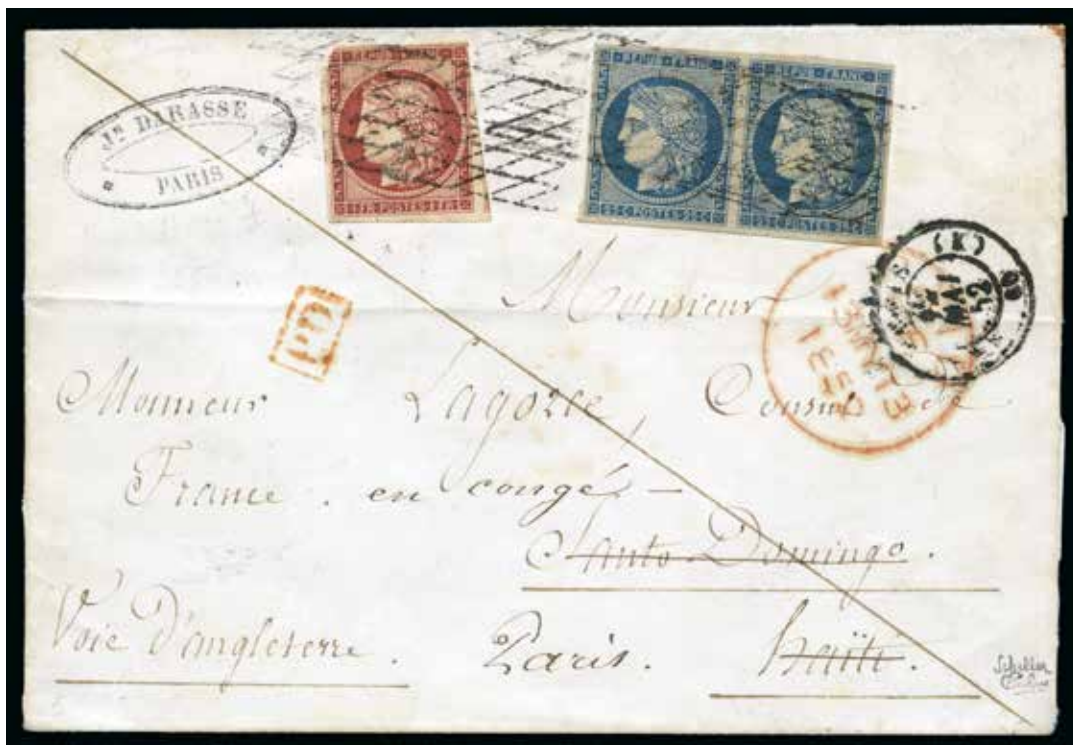 Jn DARASSE
PARIS
REPUB·FRANC
1·FR·POSTES·1·FR
REPUB·FRANC
REPUB·FRANC
25·C·POSTES·25·C
25·C·POSTES·25·C
(K)
60
MAI
52
PD
Monsieur
Monsieur Lagorce, Consul de
France. en congé —
Santo Domingo.
Voie d'angleterre. Paris. haïti.